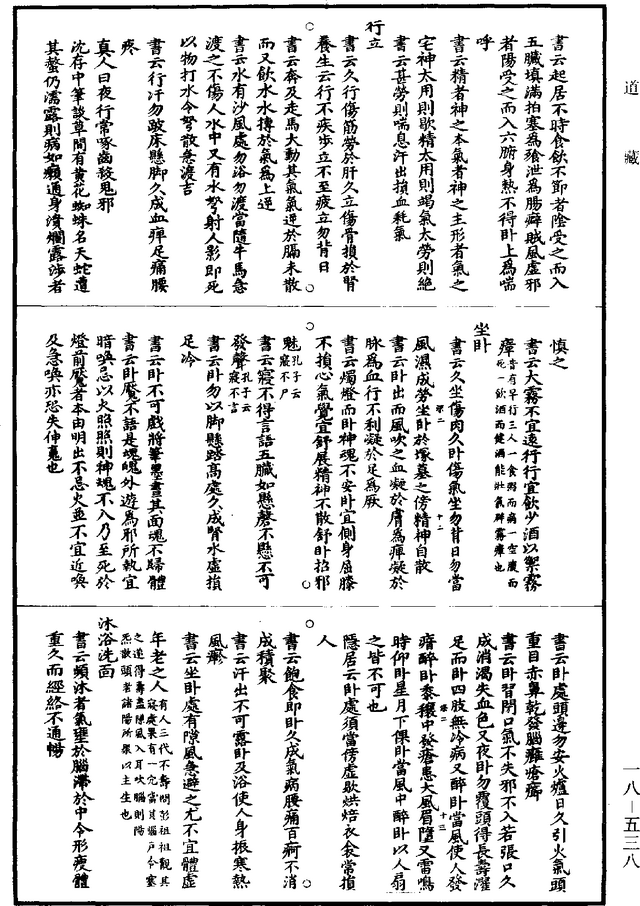 道藏
書云起居不時食飲不節者陰受之而入
五臟填滿拍塞為飱泄為腸癖賊風虛邪
者陽受之而入六腑身熱不得卧上為喘
呼
書云精者神之本氣者神之主形者氣之
宅神太用則歇精太用則竭氣太勞則絕
書云甚勞則喘息汗出損血耗氣
行立
書云久行傷筋勞於肝久立傷骨損於腎
養生云行不疾步立不至疲立勿背日
書云奔及走馬大動其氣氣逆於膈未散
而又飲水水搏於氣為上逆
書云水有沙風處勿浴勿渡當隨牛馬急
渡之不傷人水中又有水弩射人影即死
以物打水令弩散急渡吉
書云行汗勿跂床懸脚久成血痺足痛腰
疼
真人曰夜行常啄齒殺鬼邪
沈存中筆談草間有黃花蜘蛛名天蛇遭
其螫仍濡露則病如癩通身潰爛露涉者
慎之
書云大霧不宜遠行行宜飲少酒以禦霧
瘴昔有早行三人一食粥而病一空腹而死一飲酒而健酒能壯氣辟霧瘴也
坐卧
書云久坐傷肉久卧傷氣坐勿背日勿當
風濕成勞坐卧於塚墓之傍精神自散
書云卧出而風吹之血凝於膚為痺凝於
脉為血行不利凝於足為厥
書云燭燈而卧神魂不安卧宜側身屈膝
不損心氣覺宜舒展精神不散舒卧招邪
魅孔子云寢不尸
書云寢不得言語五臟如懸磬不懸不可
發聲孔子云寢不言
書云卧勿以脚懸踏高處久成腎水虛損
足冷
書云卧不可戲將筆墨畫其面魂不歸體
書云卧魘不語是魂魄外遊為邪所執宜
暗喚忌以火照照則神魂不入乃至死於
燈前魘者本由明出不忌火並不宜近喚
及急喚亦恐失神魂也
書云卧處頭邊勿安火爐日久引火氣頭
重目赤鼻乾發腦癰瘡癤
書云卧習閉口氣不失邪不入若張口久
成消渴失血色又夜卧勿覆頭得長壽濯
足而卧四肢無冷病又醉卧當風使人發
瘖醉卧黍穰中發瘡患大風眉墮又雷鳴
時仰卧星月下倮卧當風中醉卧以人扇
之皆不可也
隱居云卧處須當傍虛歇烘焙衣衾常損
人
書云飽食即卧久成氣病腰痛百疴不消
成積聚
書云汗出不可露卧及浴使人身振寒熱
風癬
書云坐卧處有隙風急避之尤不宜體虛
年老之人有人三代不壽問彭祖祖觀其寢處果有一穴當其腦户令塞之遂得壽盖隙風入耳吹腦則陽炁散頭者諸陽所聚以主生也
沐浴洗面
書云頻沐者氣壅於腦滯於中令形瘦體
重久而經絡不通暢
一八—五三八